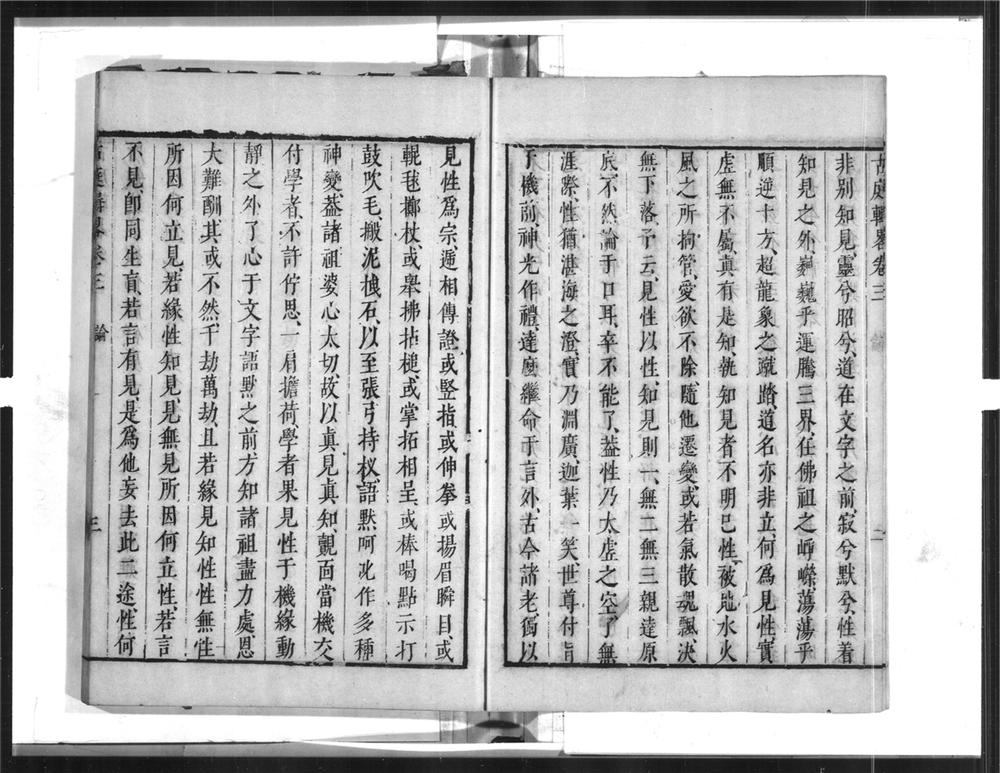 古庭輯畧卷三 論 二
非別知見靈兮昭兮、道在文字之前、寂兮默兮、性着
知見之外、巍巍乎運騰三界、任佛祖之崢嶸、蕩蕩乎
順逆十方、超龍象之蹴踏、道名亦非立、何爲見性、實
虛無不屬、真有是知、孰知見者、不明己性、被地水火
風之所拘管、愛欲不除、隨他遷變、或若氣散魂飄、決
無下落、予云、見性以性、知見則一、無二無三、親達原
底、不然論于口耳、幸不能了、葢性乃太虛之空、了無
涯際、性猶湛海之澄、實乃淵廣、迦葉一笑、世尊付旨
于機前、神光作禮、達磨繼命于言外、古今諸老、獨以
見性爲宗、遞相傳證、或竪指、或伸拳、或揚眉瞬目、或
輥毬擲杖、或舉拂拈槌、或掌拓相呈、或棒喝點示、打
鼓吹毛、搬泥拽石、以至張弓持杈、語默呵叱、作多種
神變、葢諸祖婆心太切、故以真見真知、覿面當機、交
付學者、不許佇思、一肩擔荷、學者果見性于機緣動
靜之外、了心于文字語默之前、方知諸祖盡力處、恩
大難酬、其或不然、千劫萬劫、且若緣見知性、性無性
所、因何立見、若緣性知見、見無見所、因何立性、若言
不見、卽同生盲、若言有見、是爲他妄、去此二途、性何
古庭輯畧卷三 論 三